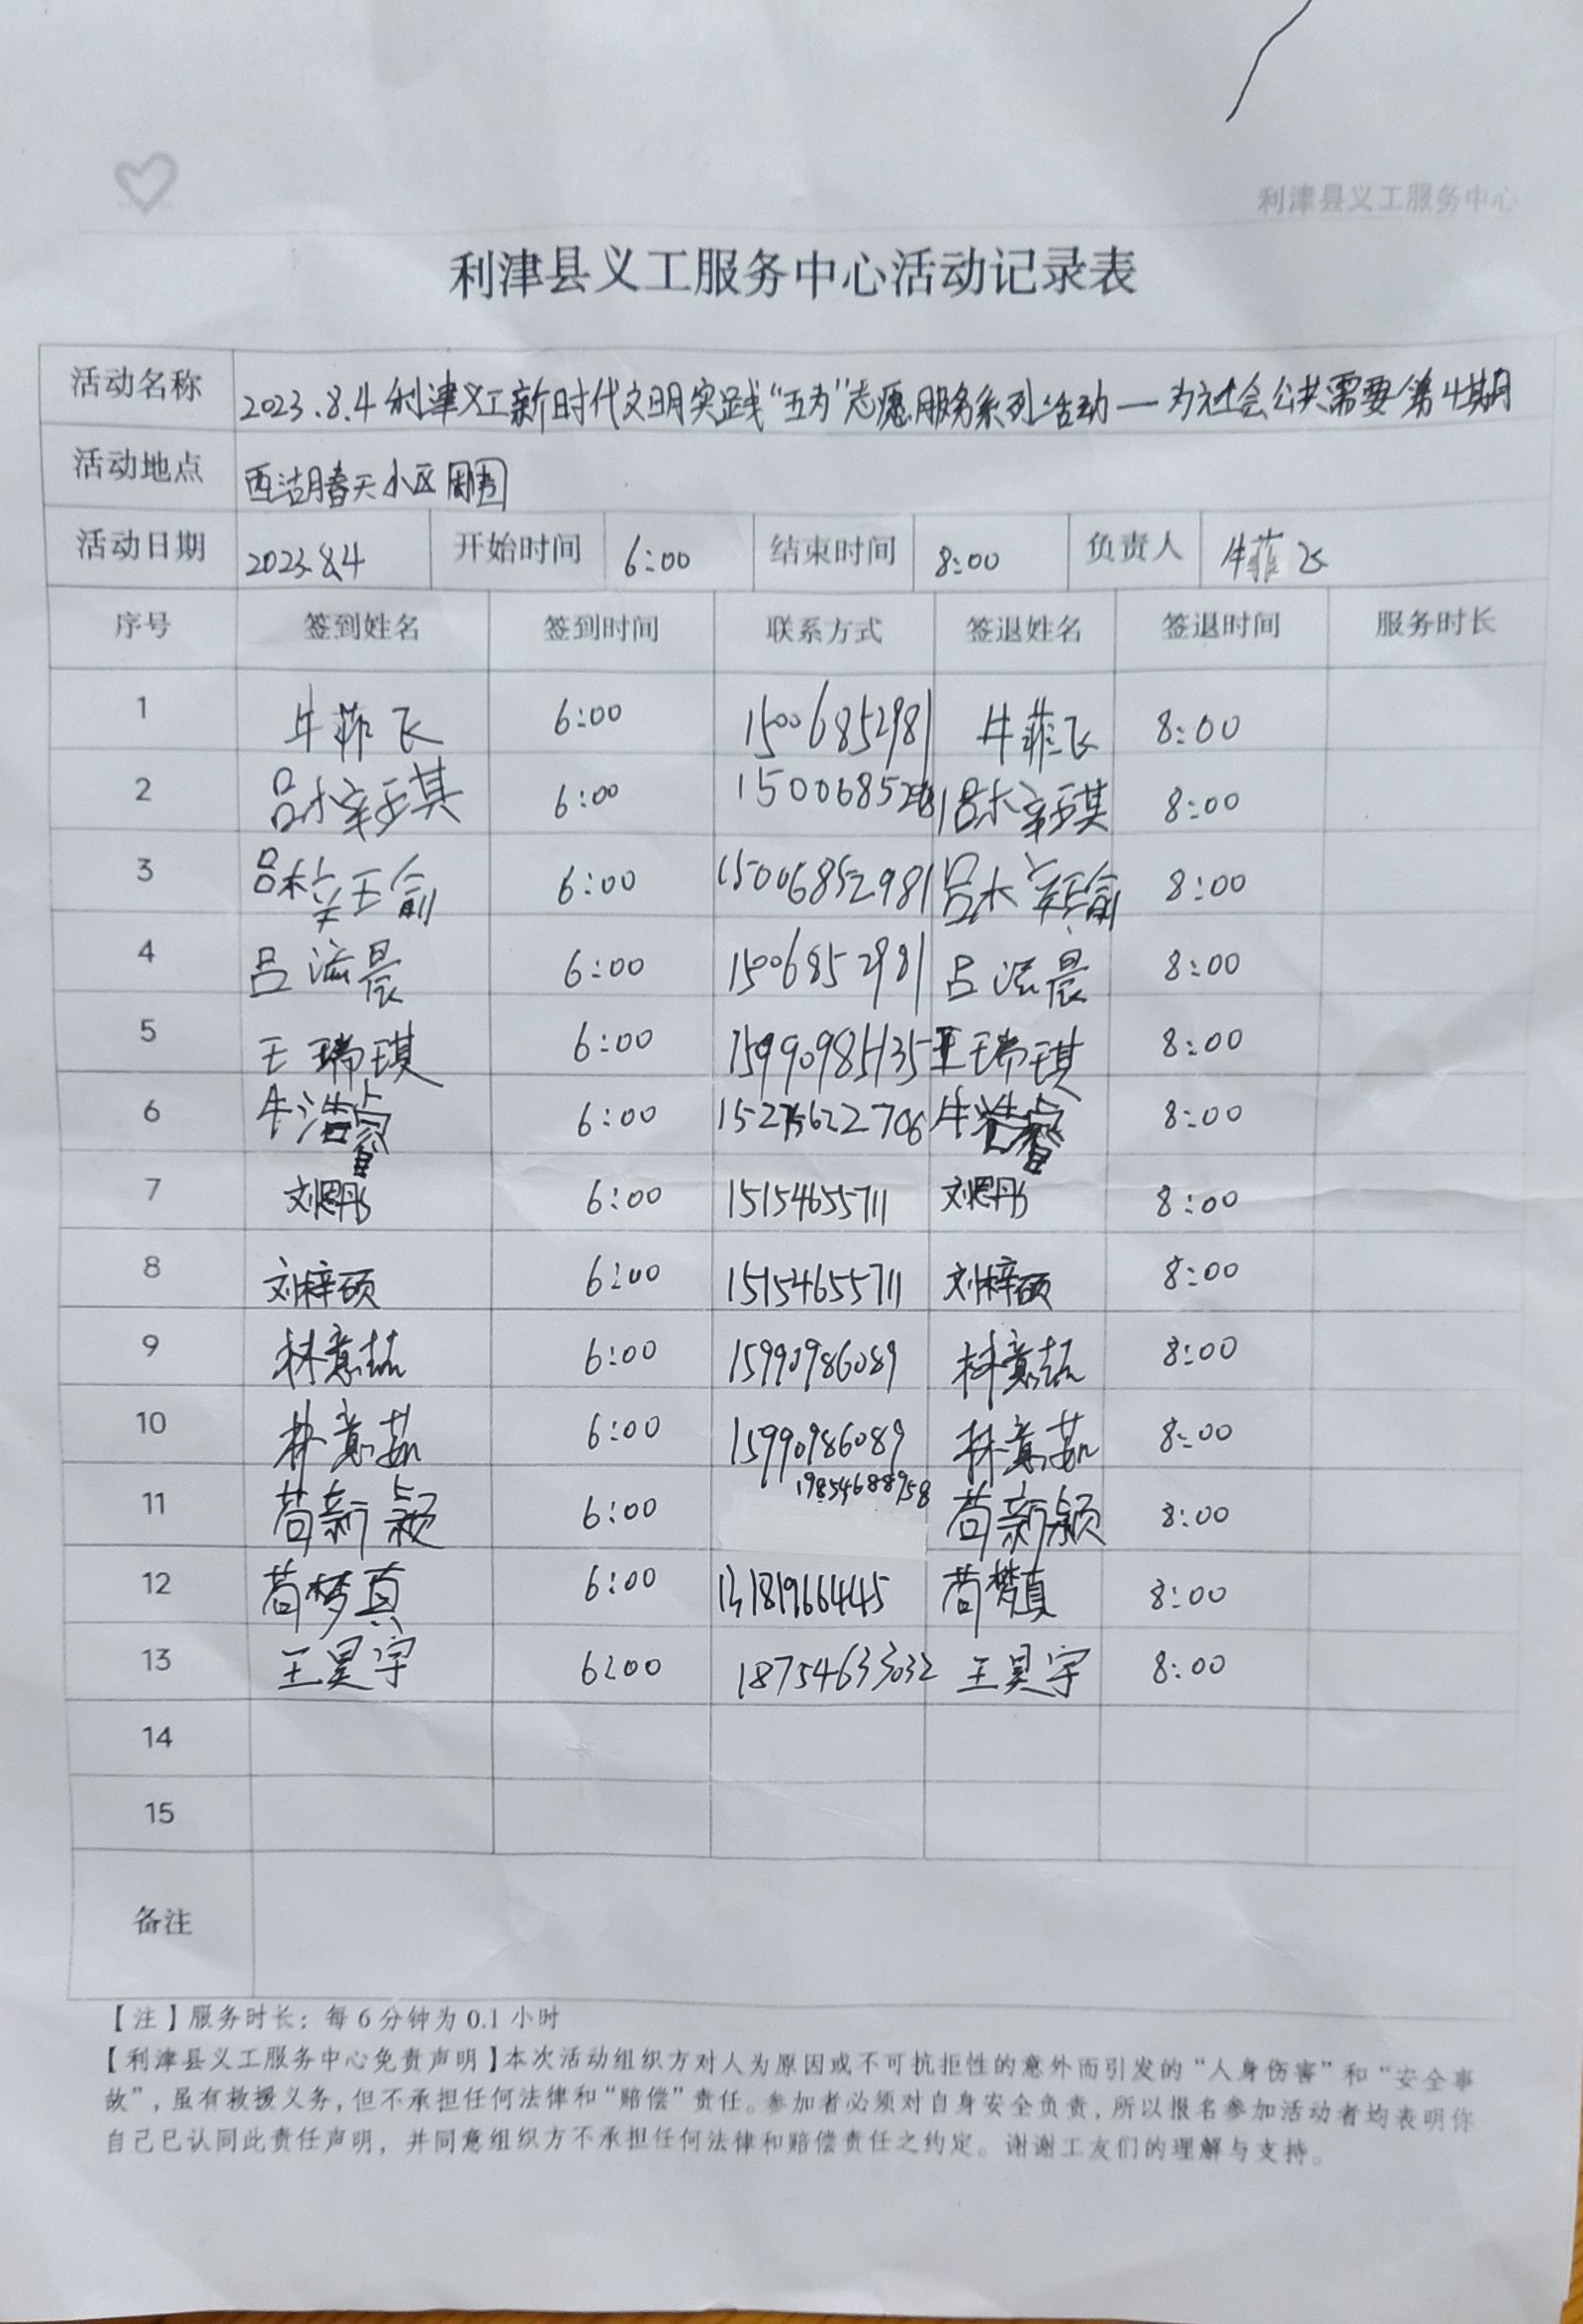 利津县义工服务中心
利津县义工服务中心活动记录表
活动名称 2023.8.4利津义工新时代文明实践“五为”志愿服务系列活动—为社会公共需要第4期
活动地点 西湖春天小区周围
活动日期 2023.8.4 开始时间 6:00 结束时间 8:00 负责人 牛菲飞
序号 签到姓名 签到时间 联系方式 签退姓名 签退时间 服务时长
1 牛菲飞 6:00 15006852981 牛菲飞 8:00
2 吕梓琪 6:00 15006852981 吕梓琪 8:00
3 吕梓瑜 6:00 15006852981 吕梓瑜 8:00
4 吕 晨 6:00 15006852981 吕 晨 8:00
5 王瑞琪 6:00 15990985135 王瑞琪 8:00
6 牛浩睿 6:00 15275622706 牛浩睿 8:00
7 刘恩彤 6:00 15154655711 刘恩彤 8:00
8 刘梓硕 6:00 15154655711 刘梓硕 8:00
9 林意茹 6:00 15990986089 林意茹 8:00
10 林意茹 6:00 15990986089 林意茹 8:00
11 苟新颖 6:00 19854688958 苟新颖 8:00
12 苟梦真 6:00 13181966445 苟梦真 8:00
13 王昊宇 6:00 18754633032 王昊宇 8:00
14
15
备注
【注】服务时长：每6分钟为0.1小时
【利津县义工服务中心免责声明】本次活动组织方对人为原因或不可抗拒性的意外而引发的“人身伤害”和“安全事
故”，虽有救援义务，但不承担任何法律和“赔偿”责任。参加者必须对自身安全负责，所以报名参加活动者均表明你
自己已认同此责任声明，并同意组织方不承担任何法律和赔偿责任之约定。谢谢工友们的理解与支持。